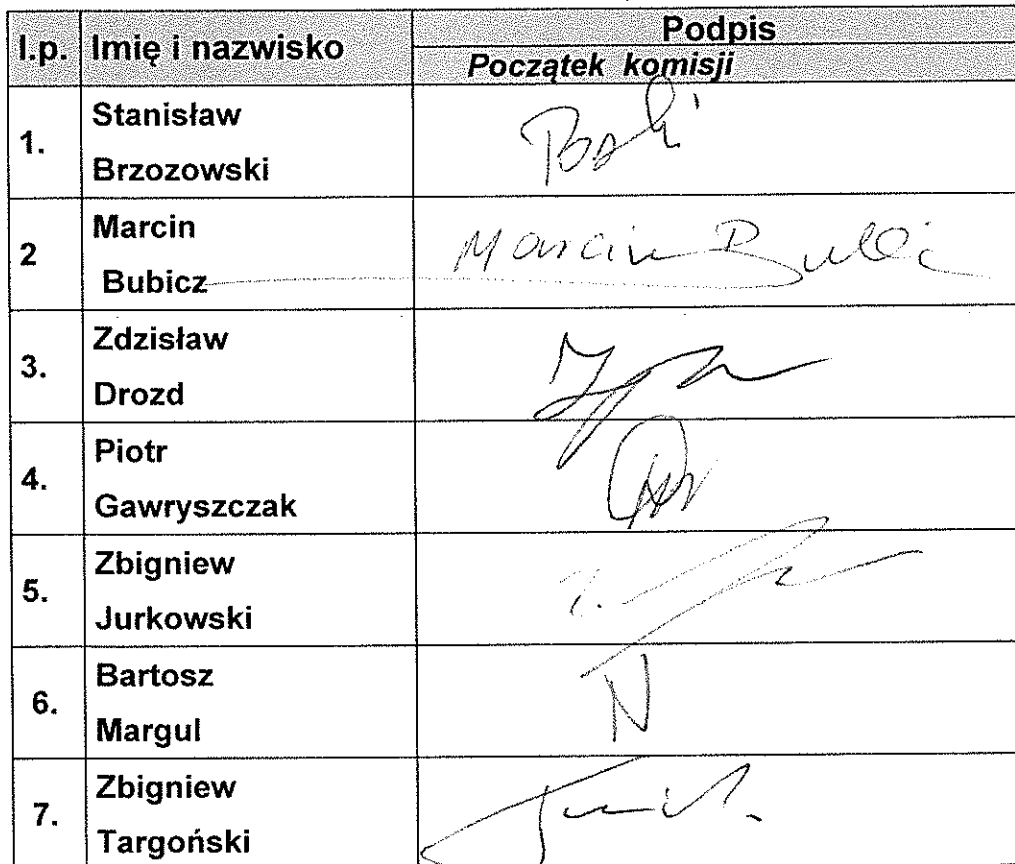 l.p. Imię i nazwisko Podpis
Początek komisji
1. Stanisław
Brzozowski
2 Marcin
Bubicz
Marcin Bubicz
3. Zdzisław
Drozd
4. Piotr
Gawryszczak
5. Zbigniew
Jurkowski
6. Bartosz
Margul
7. Zbigniew
Targoński